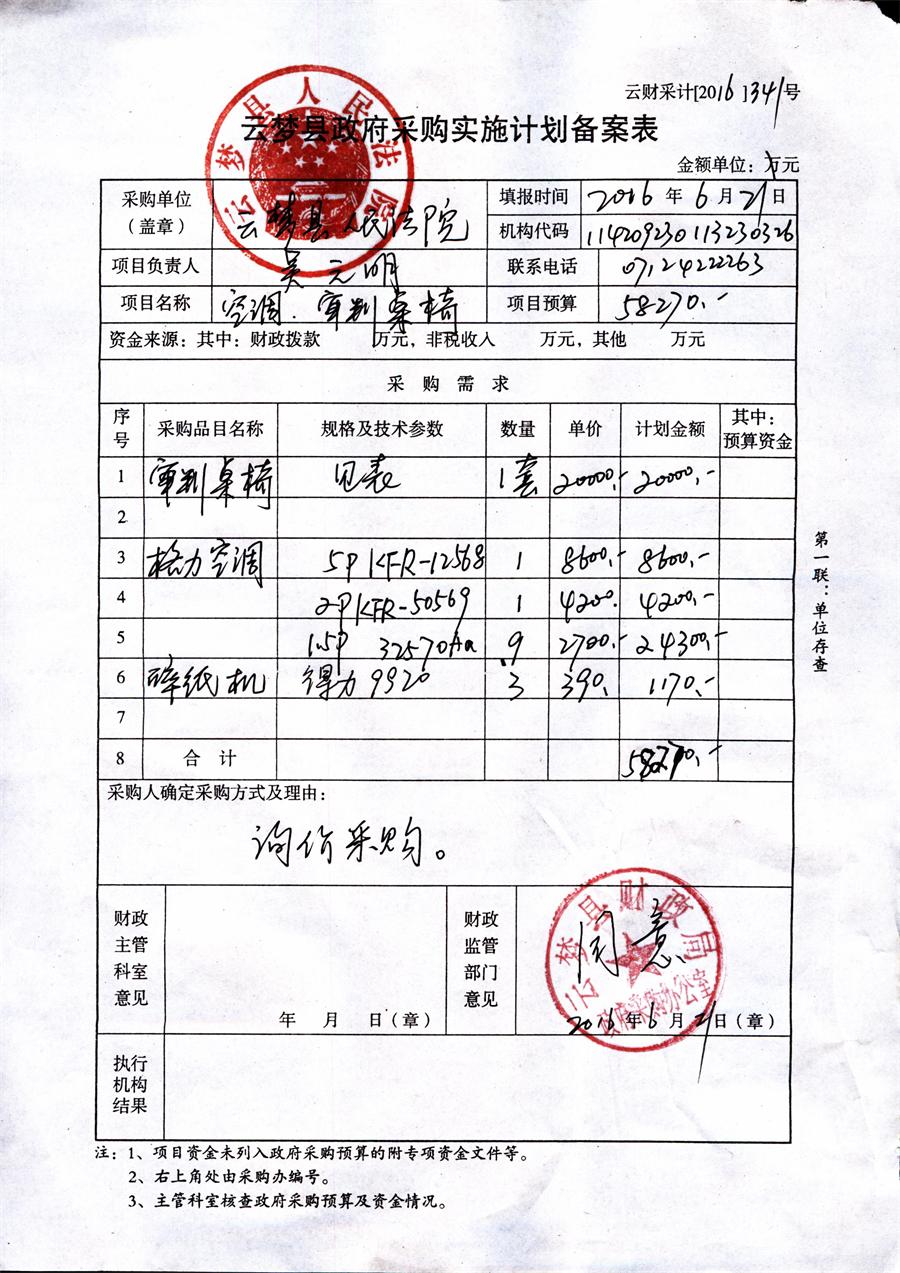 云财采计[2016]341号
云梦县政府采购实施计划备案表
金额单位：万元
云梦县人民法院
采购单位（盖章） 云梦县人民法院 填报时间 2016年6月21日
机构代码 114209230113230326
项目负责人 吴元明 联系电话 07124222263
项目名称 空调.审判桌椅 项目预算 58270.-
资金来源：其中：财政拨款 万元，非税收入 万元，其他 万元
采购需求
序号 采购品目名称 规格及技术参数 数量 单价 计划金额 其中：预算资金
1 审判桌椅 见表 1套 20000.- 20000.-
2
3 格力空调 5P KFR-12568 1 8600.- 8600.-
4 2P KFR-50569 1 4200. 4200.-
5 1.5P 32570Aa 9 2700.- 24300.-
6 碎纸机 得力9920 3 390. 1170.-
7
8 合计 58270.-
第一联：单位存查
采购人确定采购方式及理由：
询价采购。
财政主管科室意见 年 月 日（章）
财政监管部门意见 同意
云梦县财政局
政府采购办公室
2016年6月21日（章）
执行机构结果
注：1、项目资金未列入政府采购预算的附专项资金文件等。
2、右上角处由采购办编号。
3、主管科室核查政府采购预算及资金情况。